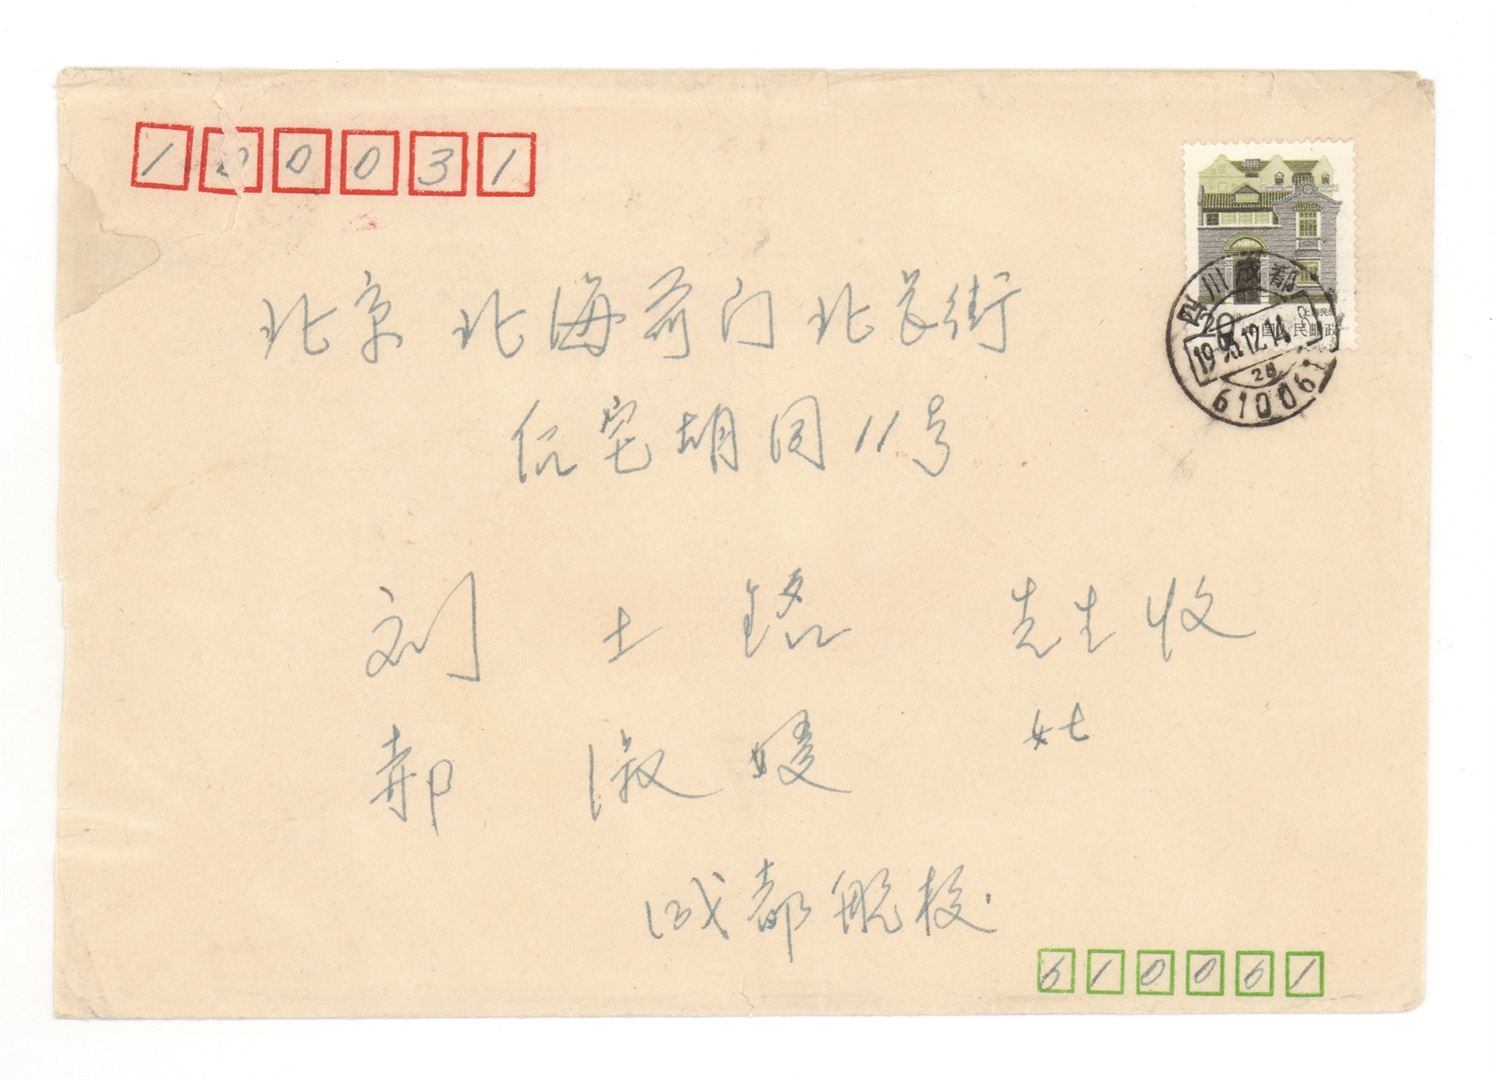 100031
北京 北海前门北长街
伍宅胡同11号
刘 士 铭 先生收
郝 淑 媛 女士
成都航校.
610061
四川成都
20 中国人民邮政
上海民居
1995.12.14.
610061